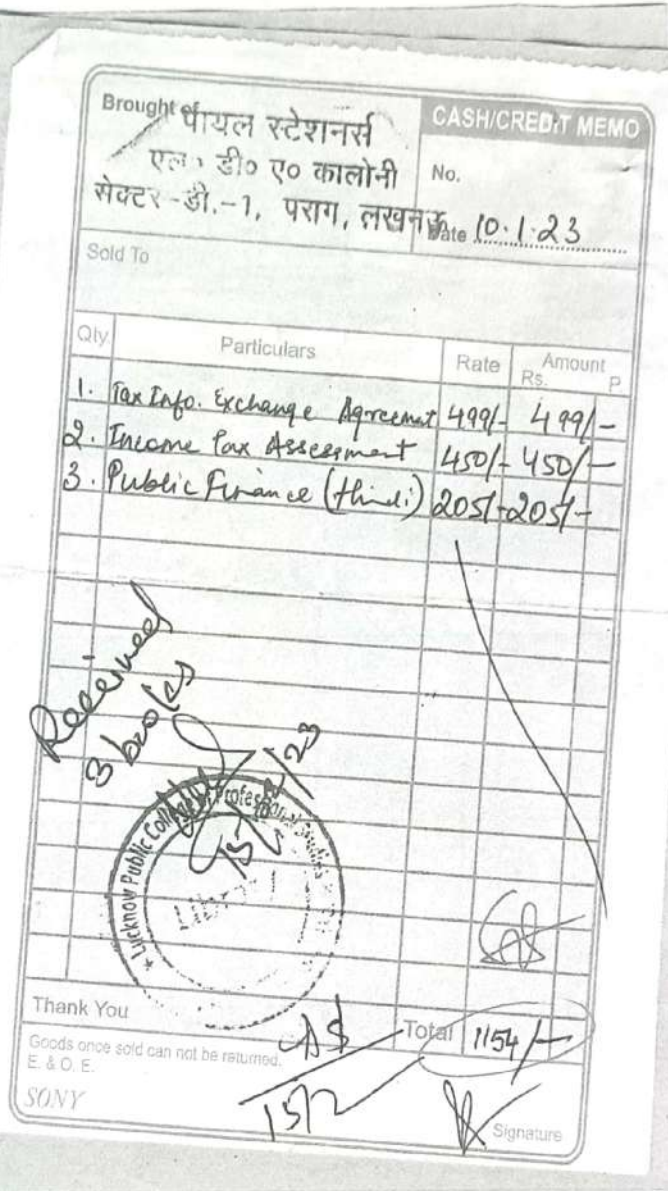 Brought of
पायल स्टेशनर्स
एल० डी० ए० कालोनी
सेक्टर-डी.-1, पराग, लखनऊ
CASH/CREDIT MEMO
No.
Date 10.1.23
Sold To
Qty. Particulars Rate Amount
Rs. P.
1. Tax Info. Exchange Agreemat 499/- 499/-
2. Income Tax Assessment 450/- 450/-
3. Public Finance (Hindi) 205/- 205/-
Received
3 books
Lucknow Public College of Professional Studies
Library
Thank You
Total 1154/-
Goods once sold can not be returned.
E. & O. E.
SONY
15/2
Signature